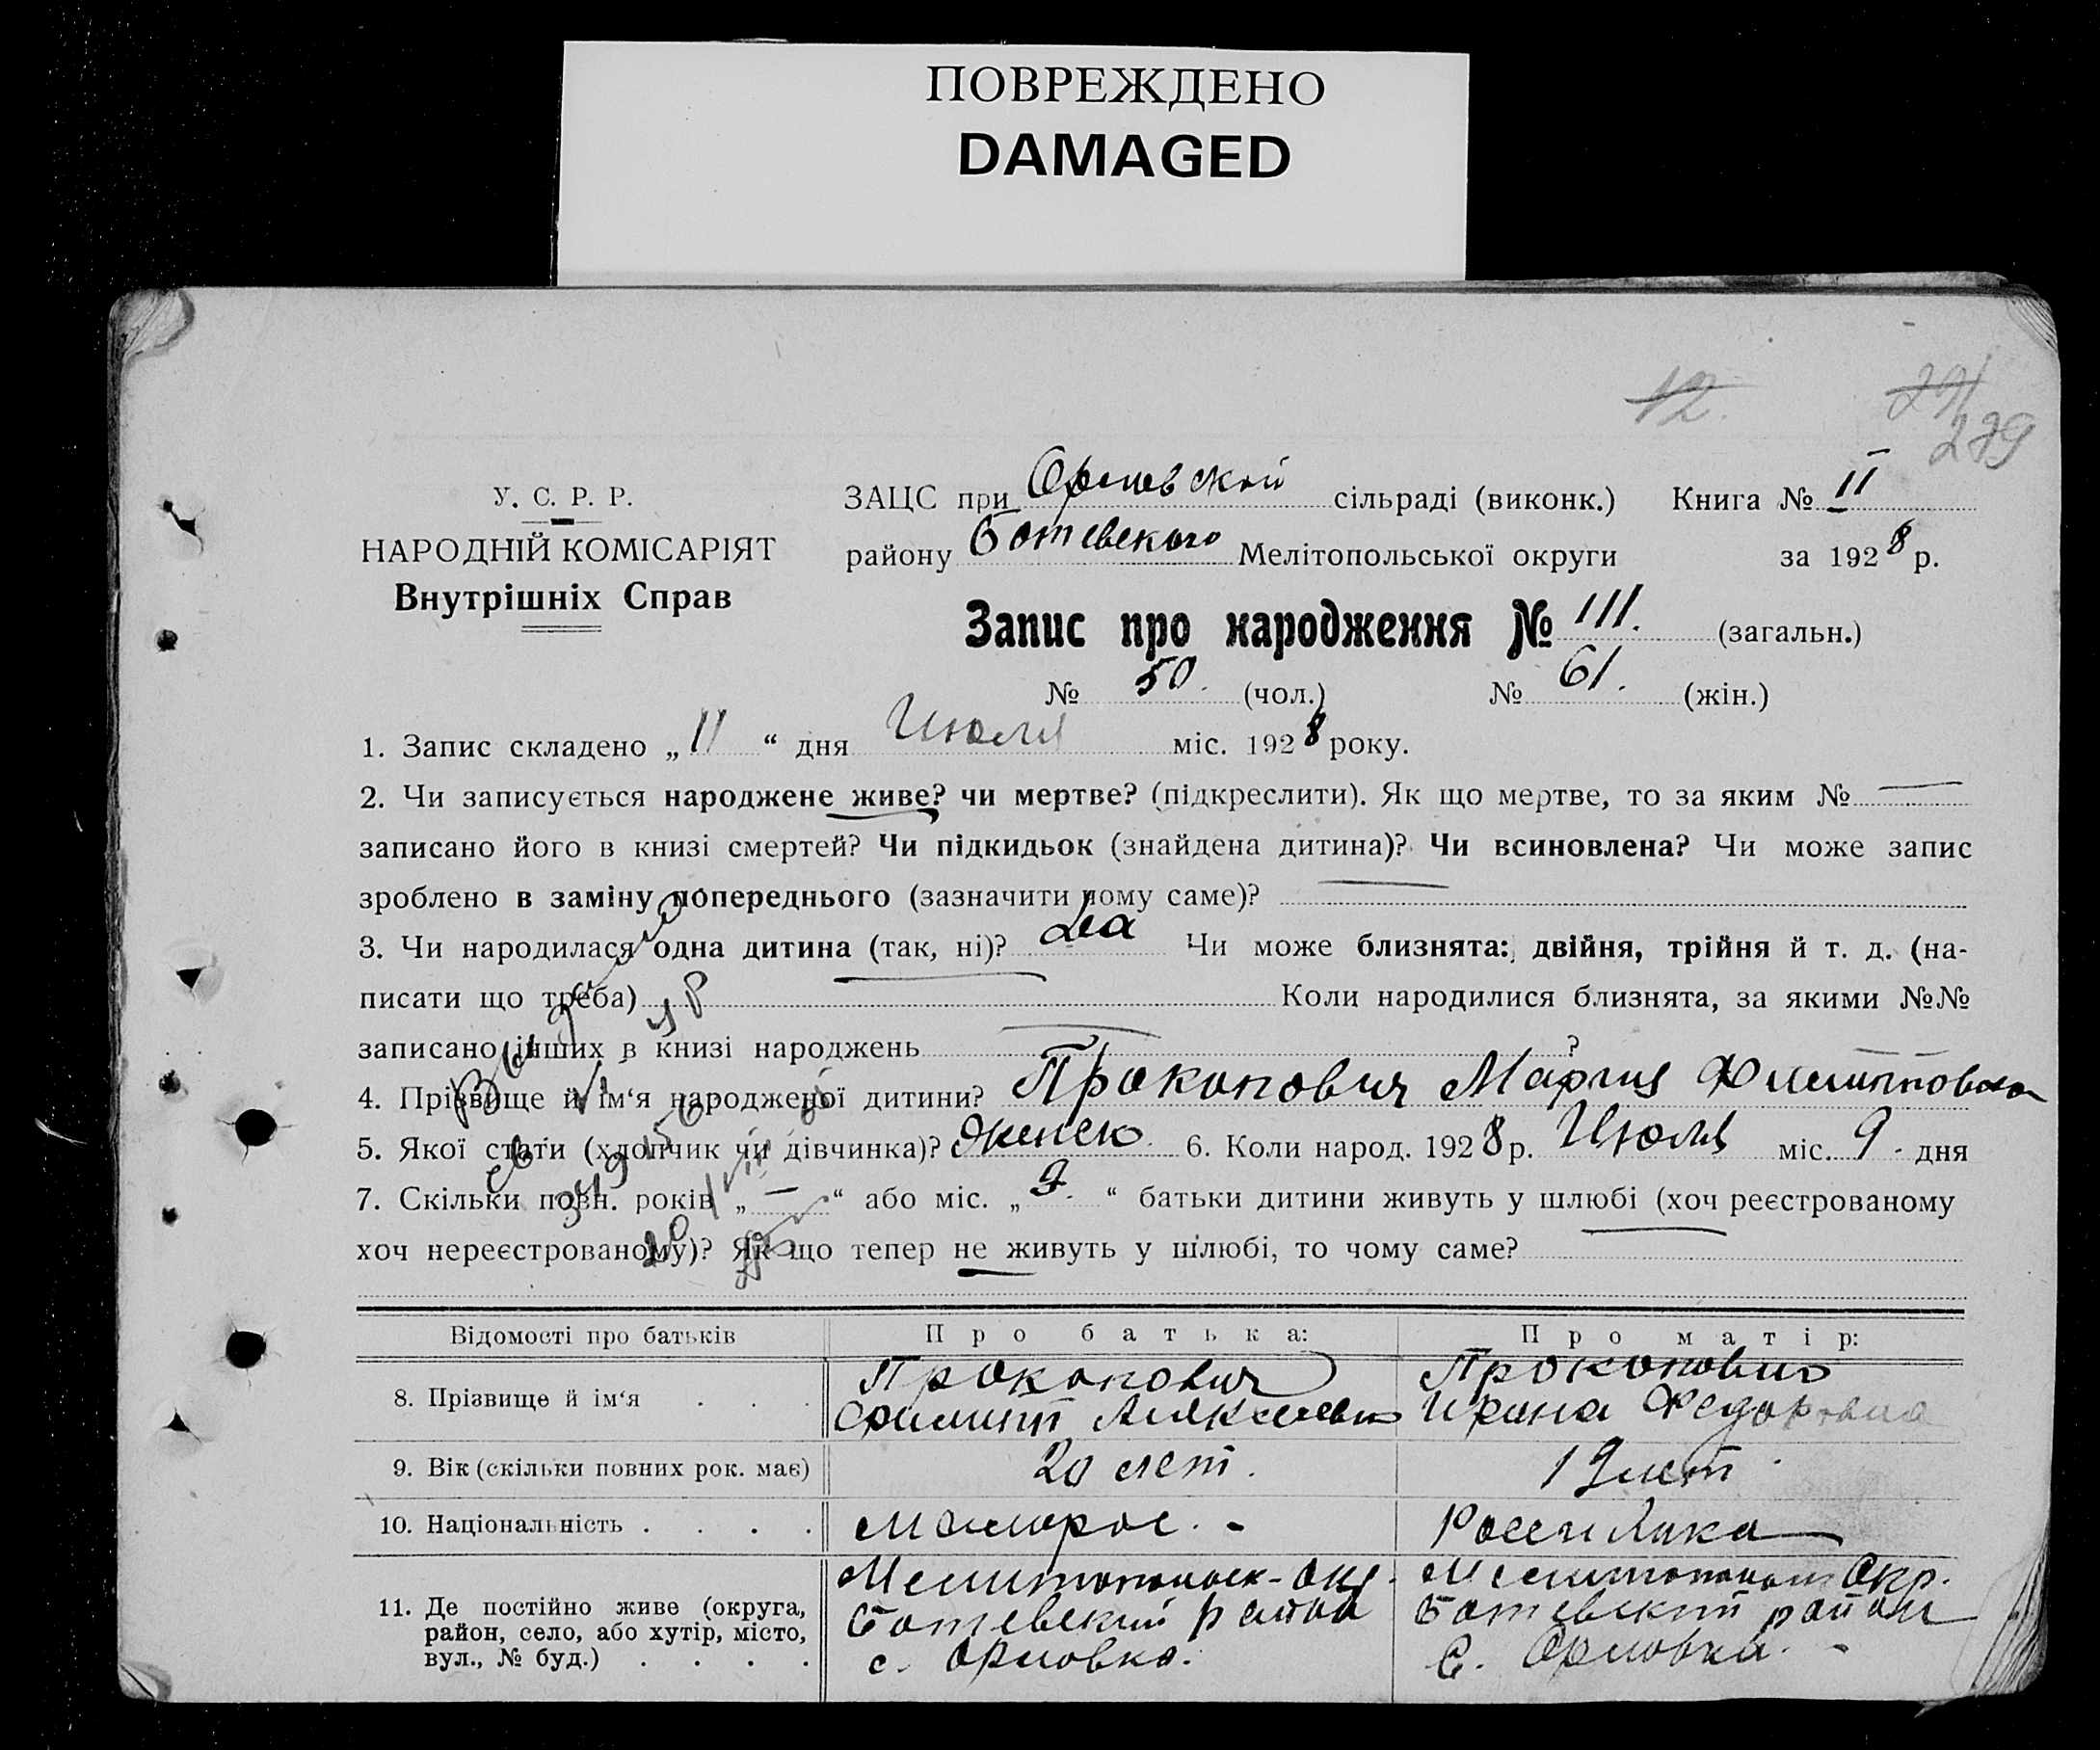 ПОВРЕЖДЕНО
DAMAGED
12.
291
279
У. С. Р. Р.
НАРОДНІЙ КОМІСАРІЯТ
Внутрішніх Справ
ЗАЦС при Орловской сільраді (виконк.) Книга № II
району Ботевского Мелітопольської округи за 1928 р.
Запис про народження № 111. (загальн.)
№ 50. (чол.) № 61. (жін.)
1. Запис складено „ 11 “ дня Июля міс. 1928 року.
2. Чи записується народжене живе? чи мертве? (підкреслити). Як що мертве, то за яким № —
записано його в книзі смертей? Чи підкидьок (знайдена дитина)? Чи всиновлена? Чи може запис
зроблено в заміну попереднього (зазначити чому саме)?
3. Чи народилася одна дитина (так, ні)? Да Чи може близнята: двійня, трійня й т. д. (на-
писати що треба) Коли народилися близнята, за якими №№
записано інших в книзі народжень ?
4. Прізвище й ім‘я народженої дитини? Прокопович Мария Филипповна
5. Якої стати (хлопчик чи дівчинка)? женск. 6. Коли народ. 1928 р. Июля міс. 9. дня
7. Скільки повн. років „ — “ або міс. „ 9. “ батьки дитини живуть у шлюбі (хоч реєстрованому
хоч нереєстрованому)? Як що тепер не живуть у шлюбі, то чому саме?
Відомості про батьків Про батька: Про матір:
8. Прізвище й ім‘я . . . Прокопович Филипп Алексеевич Прокопович Ирина Федоровна
9. Вік (скільки повних рок. має) 20 лет. 19 лет.
10. Національність . . . . Малорос. - Россиянка
11. Де постійно живе (округа, район, село, або хутір, місто, вул., № буд.) . . . . Мелитопольск-окр. Ботевский район с. Орловка. Мелитопольск Окр. Ботевский район С. Орловка. -